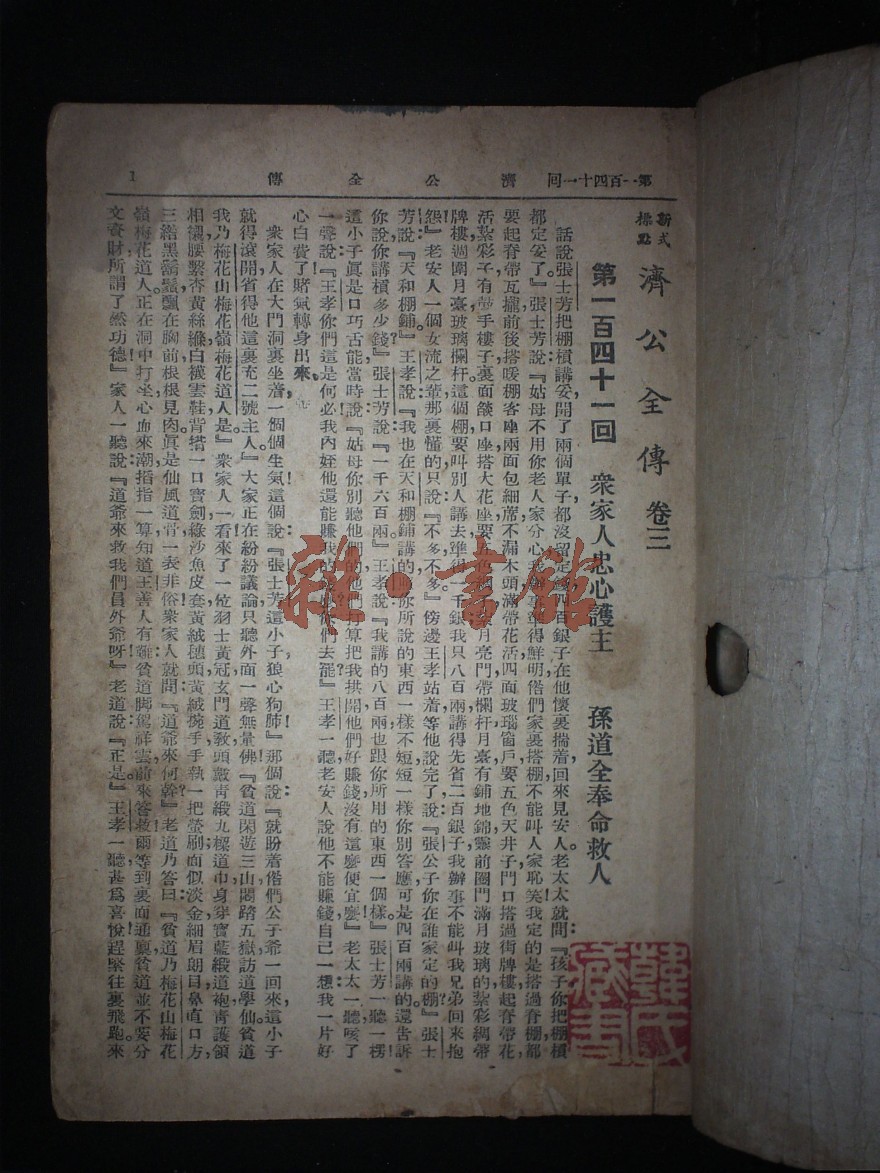 第一百四十一回 濟公全傳 1
新式標點 濟公全傳 卷三
第一百四十一回 衆家人忠心護主 孫道全奉命救人
話說張士芳把棚槓講妥開了兩個單子，都沒留定錢，四百銀子在他懷裏揣着，回來見安人。老太太就問：『孩子你把棚槓
都定妥了。』張士芳說：『姑母不用你老人家分心，我辦事準得鮮明，偺們家裏搭棚，不能叫人家恥笑，我定的是搭過脊棚，都
要起脊帶瓦攏，前後搭暖棚客座，兩面包細蓆不漏木頭，滿帶花活，四面玻璃窗戶，要五色天井子，門口搭過街牌樓，起脊帶花
活，紮彩子，有
手樓子，裏面燄口座，搭大花座，要五色
月亮門帶欄杆，月臺有鋪地錦，靈前圈門滿月玻璃的紮彩綢帶
牌樓，週圍月臺玻璃欄杆。這個棚要叫別人講去，準得一千銀，我只八百兩講得，先省二百銀子，我辦事不能叫我兄弟回來抱
怨。』老安人一個女流之輩，那裏懂的，只說：『不多不多。』傍邊王孝站着，等他說完了，說：『張公子你在誰家定的棚？』張士
芳說：『天和棚鋪。』王孝說：『我也在天和棚鋪講的，
你所說的東西一樣不短，一樣你別答應，可是四百兩講的，還告訴
你說，你講槓多少錢？』張士芳說：『一千六百兩。』王孝說：『我講的八百兩，也跟你所用的東西一個樣。』張士芳一聽一楞，
這小子眞是口巧舌能，當時說：『姑母你別聽他們的，他們打算把我拱開，他們好賺錢，沒有這麼便宜麼？』老太太一聽，咳了
一聲說：『王孝你們這是何必，我內姪他還能賺我的
你們去罷。』王孝一聽，老安人說他不能賺錢，自己一想，我一片好
心白費了，賭氣轉身出來。
衆家人在大門洞裏坐着，一個個生氣，這個說：『張士芳這小子狼心狗肺！』那個說：『就盼着偺們公子爺一回來，這小子
就得滾開，省得他這裏充二號主人。』大家正在紛紛議論，只聽外面一聲無量佛！『貧道閑遊三山，悶踏五嶽，訪道學仙，貧道
我乃梅花山梅花嶺梅花道人是。』衆家人一看，來了一位羽士黃冠玄門道教，頭戴靑緞九樑道巾，身穿寶藍緞道袍，靑護領
相襯，腰繫杏黃絲縧，白襪雲鞋，背揹一口寶劍，綠沙魚皮套，黃絨穗頭，黃絨挽手，手執一把螢刷，面似淡金，細眉朗目，鼻直口方，
三綹黑鬍鬚，飄在胸前，根根見肉，眞是仙風道骨，一表非俗。衆家人就問：『道爺來何幹？』老道乃答曰：『貧道乃梅花山梅花
嶺梅花道人，正在洞中打坐，心血來潮，掐指一算，知道王善人有難，貧道脚駕祥雲前來答救，爾等到裏面通稟，貧道並不要分
文資財，所謂了然功德。』家人一聽說：『道爺來救我們員外爺呀！』老道說：『正是。』王孝一聽甚爲喜悅，趕緊往裏飛跑，來
雜·書館
韓氏藏書